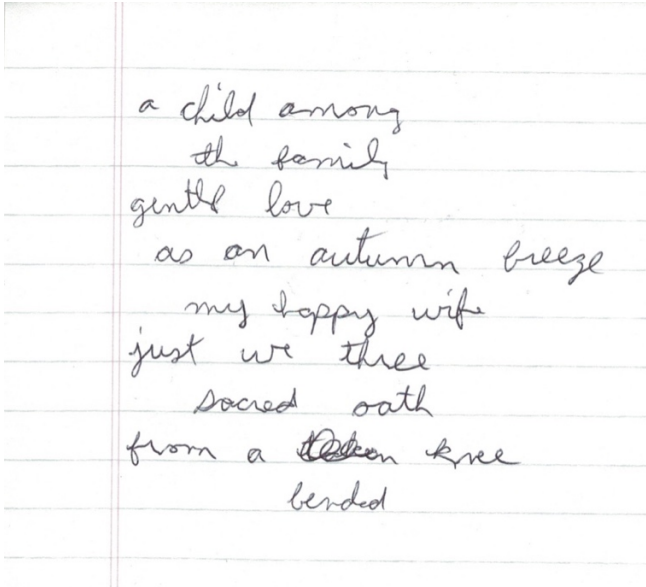 a child among
the family
gentle love
as an autumn breeze
my happy wife
just we three
sacred oath
from a knee
bended